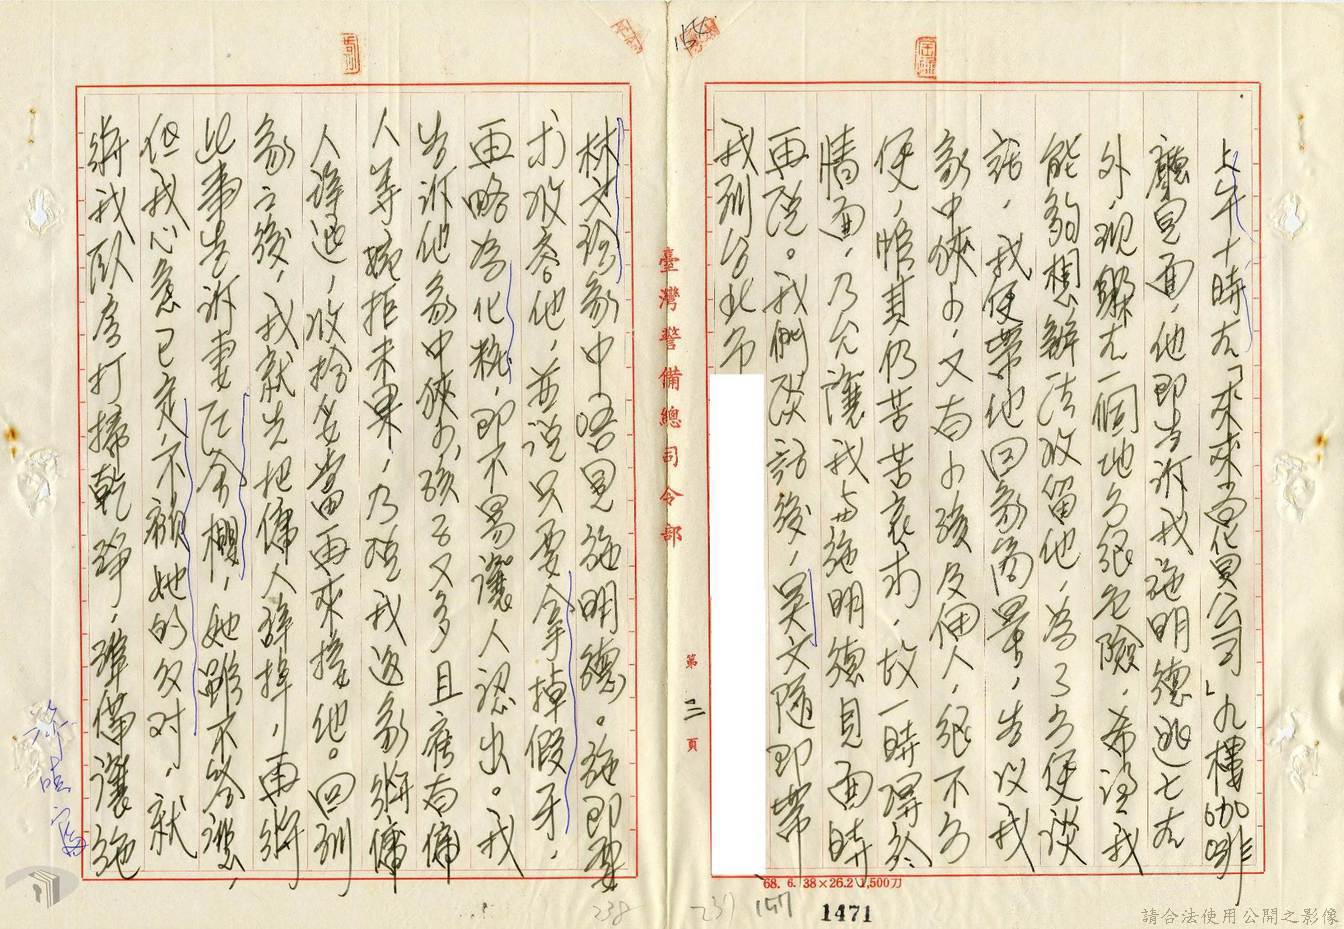 上午十時在「來來百貨公司」九樓咖啡
廳見面,他即告訴我施明德逃亡在
外,現躲在一個地方很危險,希望我
能夠想辦法收留他,為了方便談
話,我便帶他回家商量,告以我
家中狹小,又有小孩及佣人,很不方
便,惟其仍苦苦哀求,故一時礙於
情面,乃允讓我与施明德見面時
再說。我們談話後,吳文隨即帶
我到台北市
林文珍家中晤見施明德。施即要
求收容他,並說只要拿掉假牙,
再略為化粧,即不易讓人認出。我
告訴他家中狹小,孩子又多且僱有傭
人等婉拒未果,乃囑我返家將傭
人辭退,收拾妥當再來接他。回到
家之後,我就先把傭人辭掉,再將
此事告訴妻陳金櫻,她雖不答應,
但我心意已定,不顧她的反對,就
將我臥房打掃乾淨,準備讓施
臺灣警備總司令部
第 二 頁
68. 6. 38×26.2 1,500刀
1471
157
238
237
154
請合法使用公開之影像